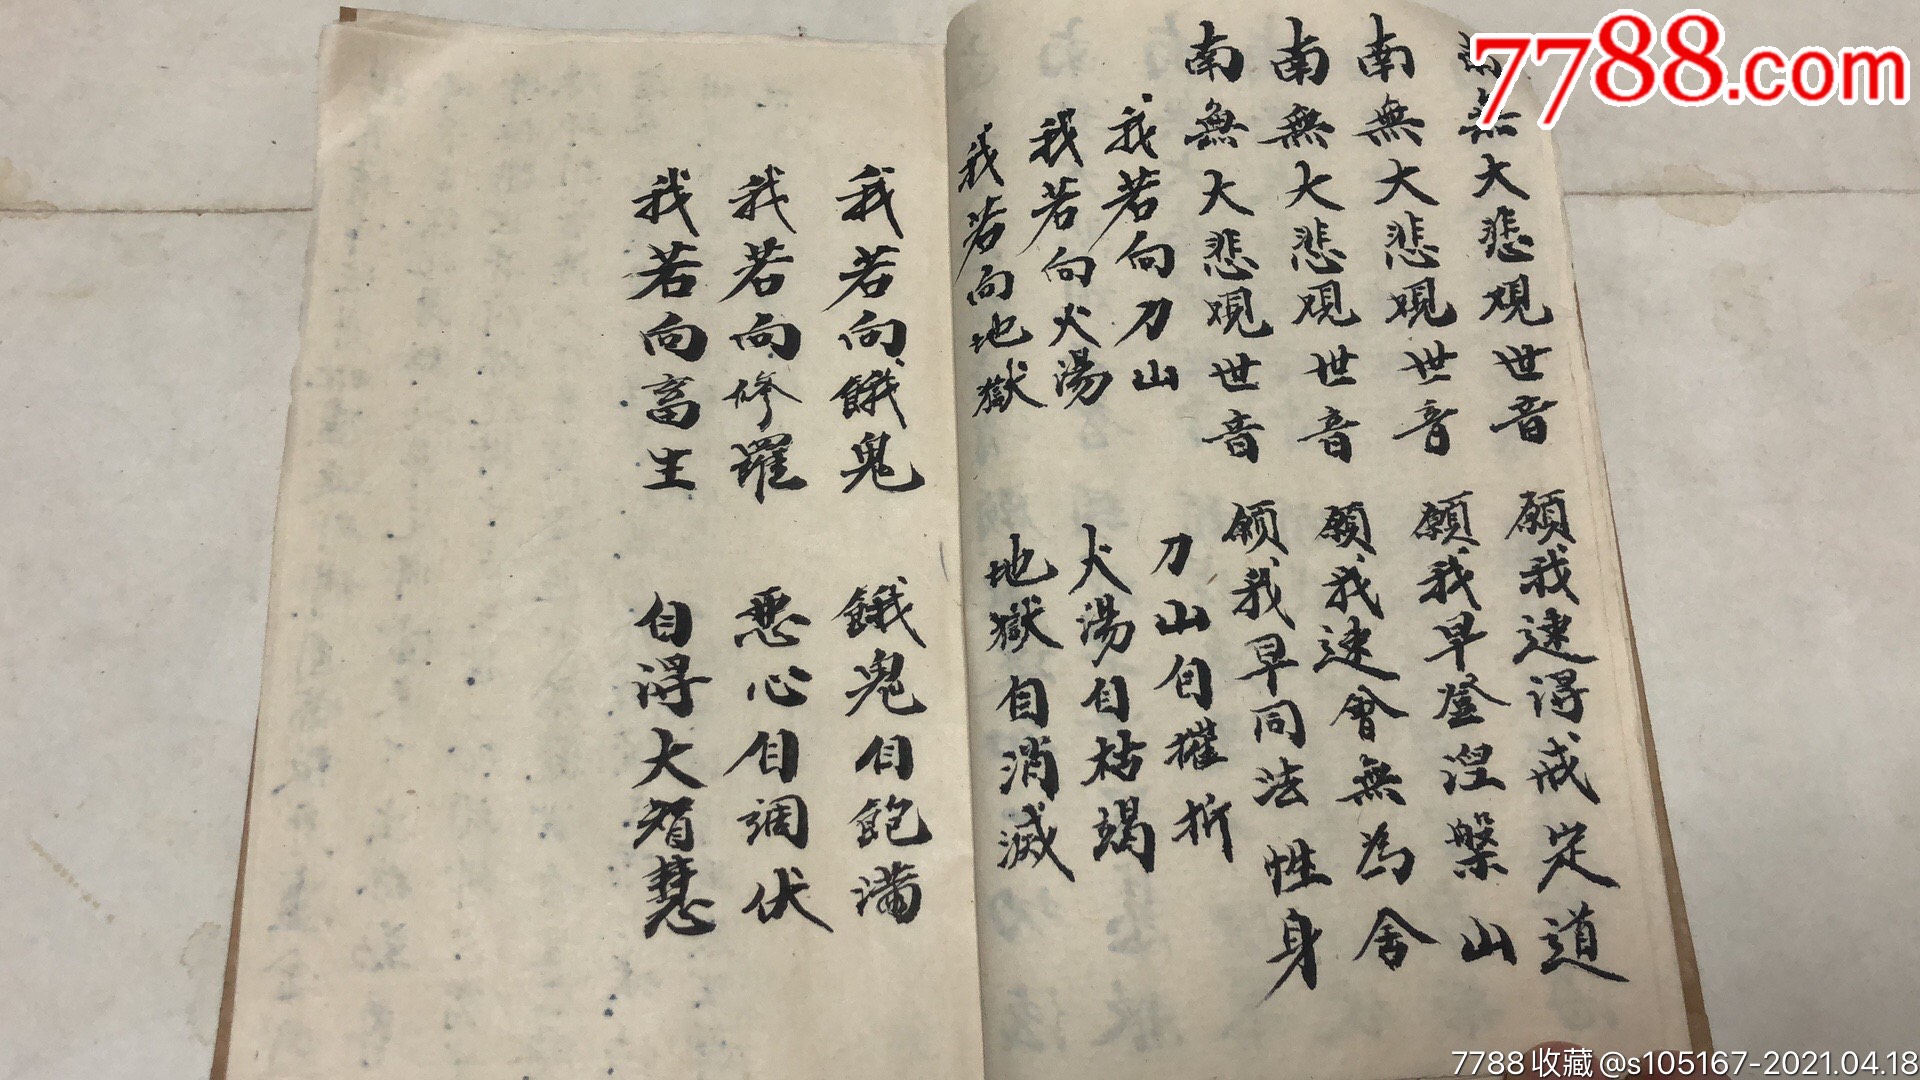 7788.com
南無大悲观世音 願我速得戒定道
南無大悲观世音 願我早登涅槃山
南無大悲观世音 願我速會無為舍
南無大悲观世音 願我早同法性身
我若向刀山 刀山自摧折
我若向火湯 火湯自枯竭
我若向地獄 地獄自消滅
我若向餓鬼 餓鬼自飽滿
我若向修羅 悪心自調伏
我若向畜生 自得大智慧
7788收藏@s105167-2021.04.18